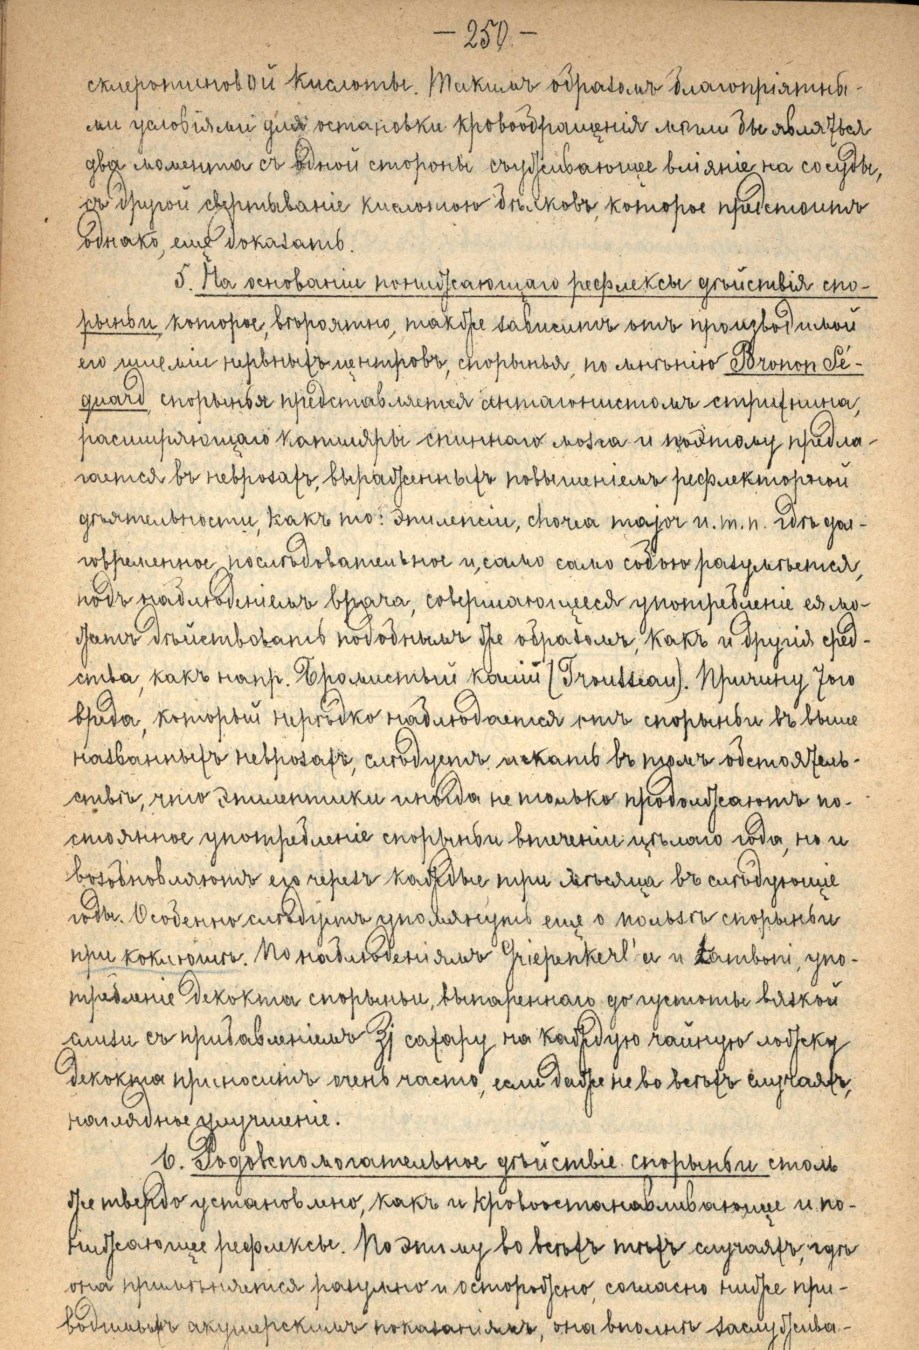 — 250 —
склеротиновой кислоты. Такимъ образомъ благопріятны-
ми условіями для остановки кровообращенія могли бы являться
два момента съ одной стороны съуживающее вліяніе на сосуды,
съ другой свертываніе кислотою бѣлковъ, которое предстоитъ
однако, еще доказать.
5. На основаніи понижающаго рефлексы дѣйствія спо-
рыньи, которое, вѣроятно, также зависитъ отъ производимой
его ишеміи нервныхъ центровъ, спорынья, по мнѣнію Bronon Sé-
quard, спорынья представляется антагонистомъ стрихнина,
расширяющаго капиляры спиннаго мозга и поэтому предла-
гается въ неврозахъ, выраженныхъ повышеніемъ рефлекторной
дѣятельности, какъ то: эпилепсіи, chorea major и.т.п. гдѣ дол-
говременное, послѣдовательное и, само само собою разумѣется,
подъ наблюденіемъ врача, совершающееся употребленіе ея мо-
жетъ дѣйствовать подобнымъ же образомъ, какъ и другія сред-
ства, какъ напр. Бромистый калій (Trousseau). Причину того
вреда, который нерѣдко наблюдается отъ спорыньи въ выше
названныхъ неврозахъ, слѣдуетъ искать въ томъ обстоятель-
ствѣ, что эпилептики иногда не только продолжаютъ по-
стоянное употребленіе спорыньи втеченіи цѣлаго года, но и
возобновляютъ его черезъ каждые три мѣсяца въ слѣдующіе
годы. Особенно слѣдуетъ упомянуть еще о пользѣ спорыньи
при коклюшѣ. По наблюденіямъ Griepenkerl'a и Zamboni, упо-
требленіе декокта спорыньи, выпареннаго до густоты вязкой
слизи съ прибавленіемъ ʒj сахару на каждую чайную ложку
декокта приноситъ очень часто, если даже не во всѣхъ случаяхъ,
наглядное улучшеніе.
6. Родовспомогательное дѣйствіе спорыньи столь
же твердо установлено, какъ и кровоостанавливающее и по-
нижающее рефлексы. Поэтому во всѣхъ тѣхъ случаяхъ, гдѣ
она примѣняется разумно и осторожно, согласно ниже при-
водимымъ акушерскимъ показаніямъ, она вполнѣ заслужива-